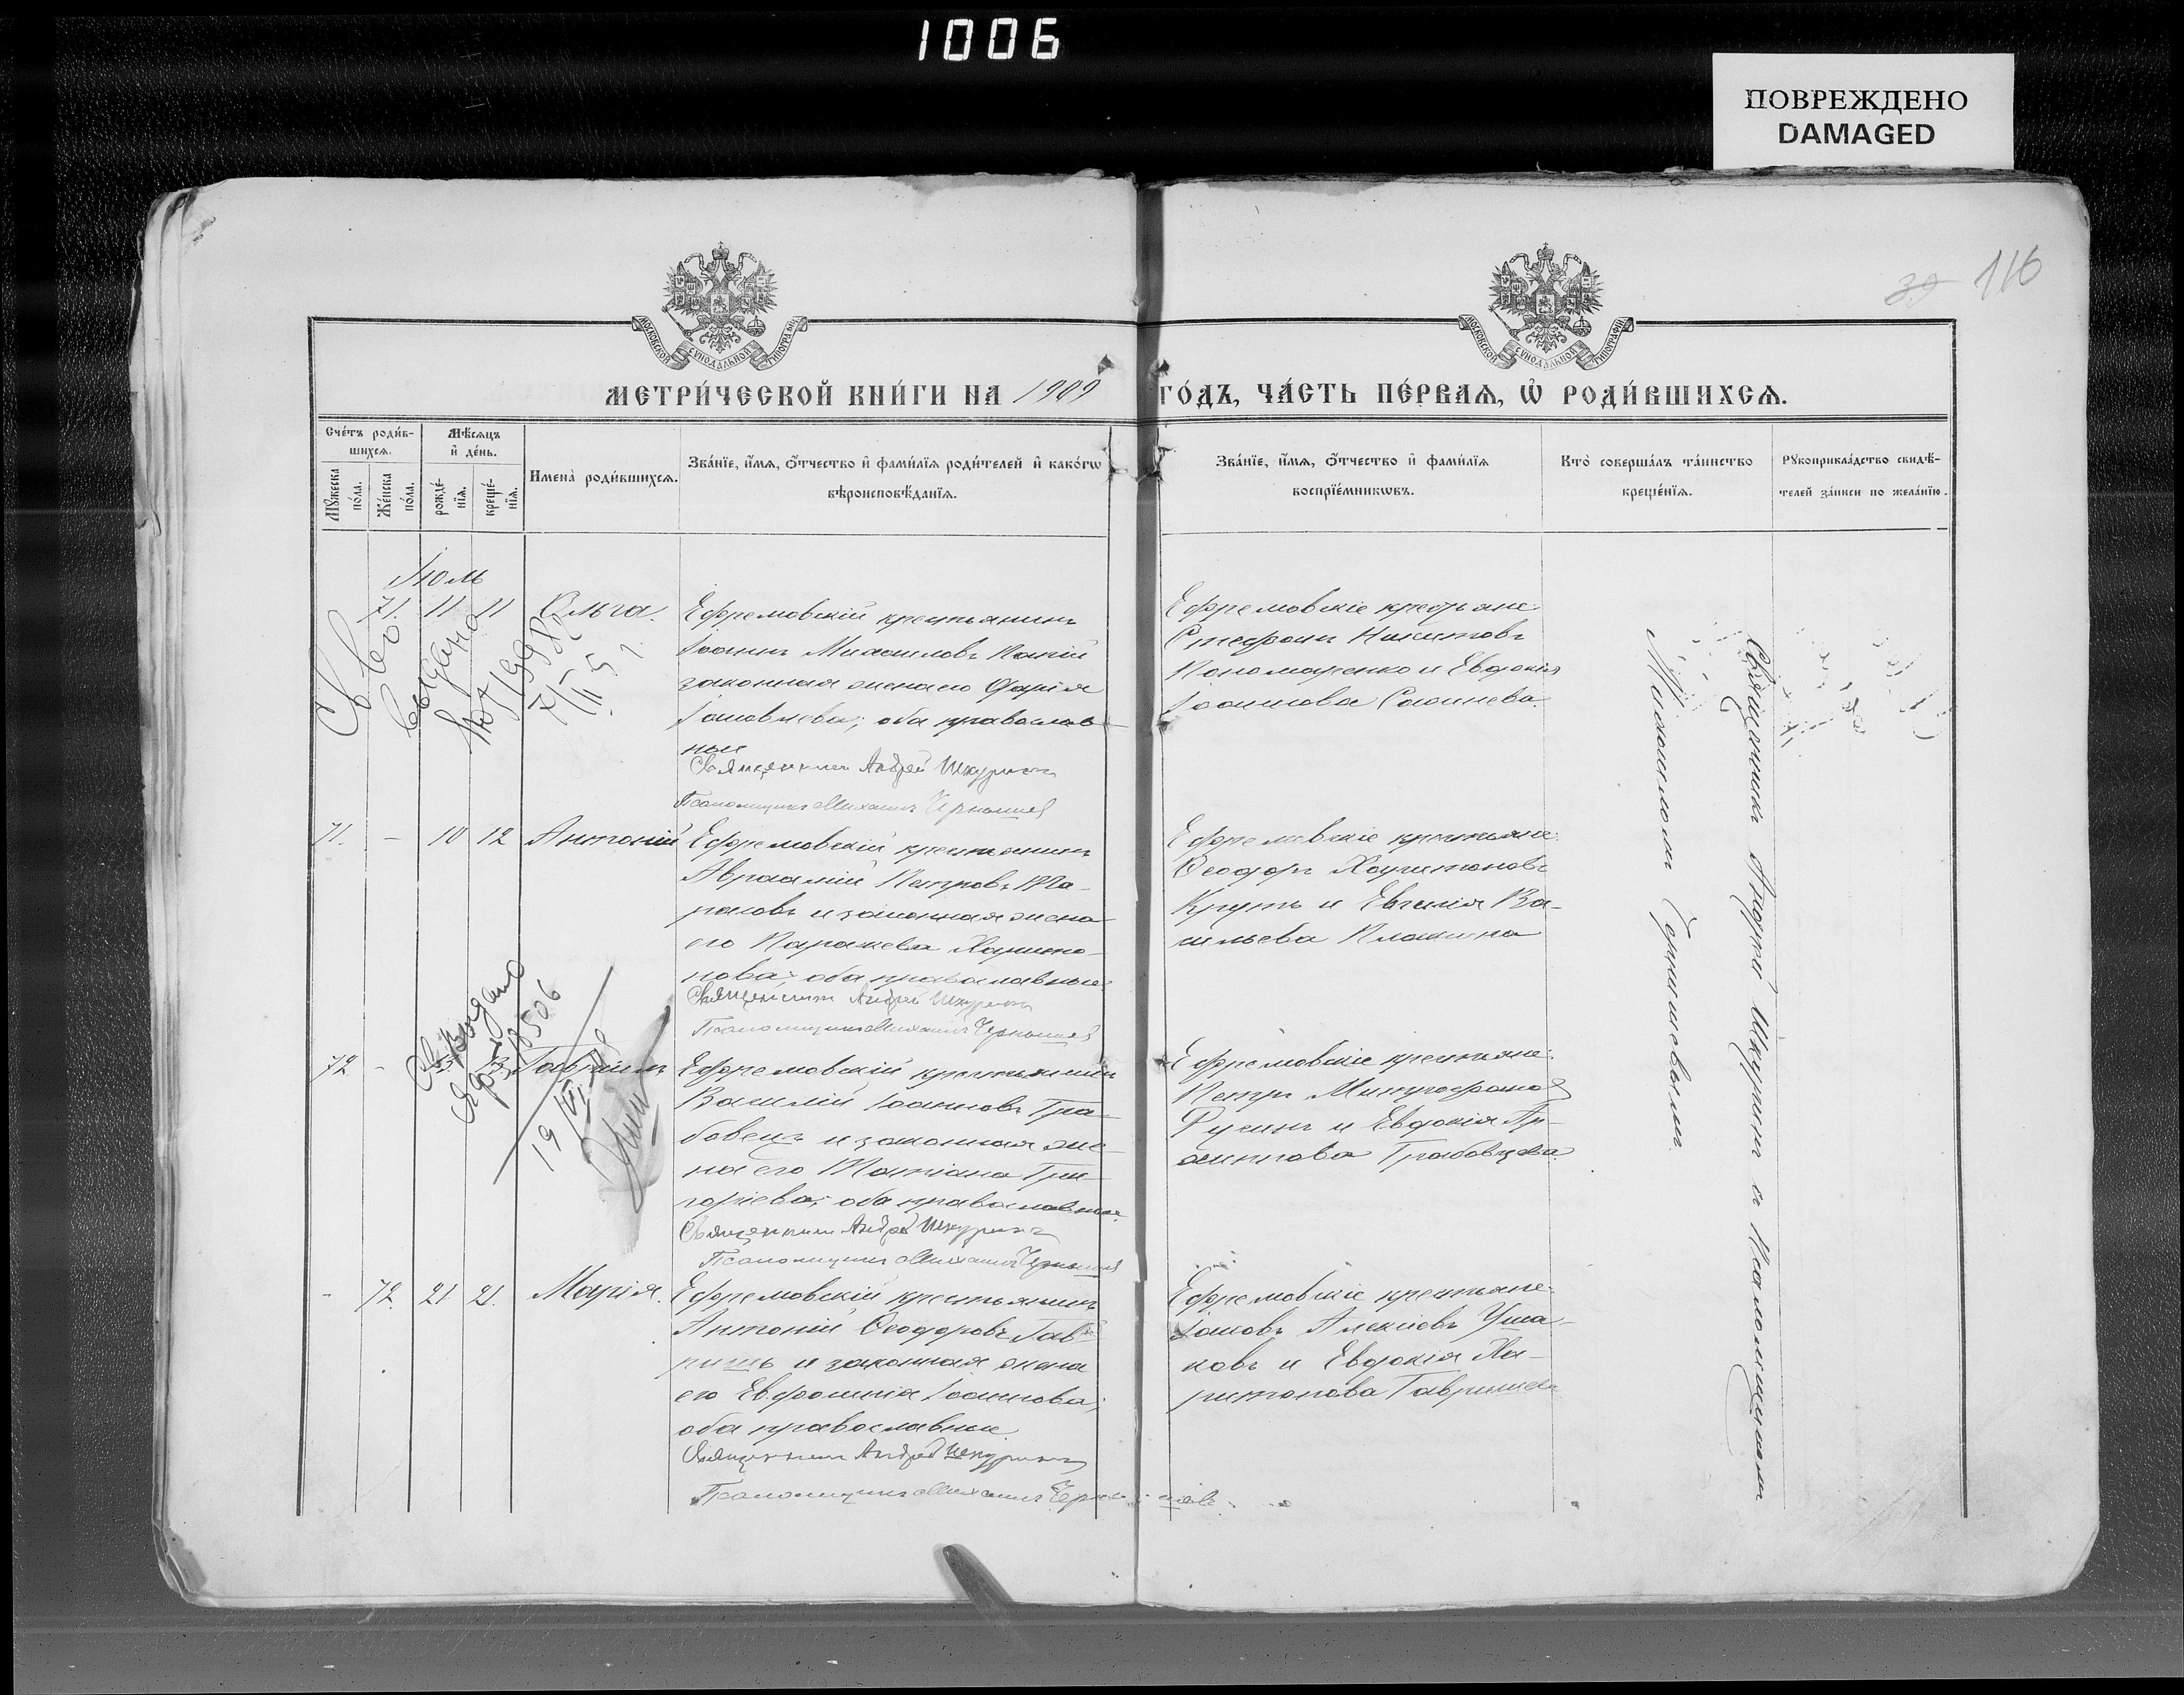 1006
ПОВРЕЖДЕНО
DAMAGED
116
МОСКОВСКОЙ СУНОДАЛЬНОЙ ТИПОГРАФІИ
МОСКОВСКОЙ СУНОДАЛЬНОЙ ТИПОГРАФІИ
МЕТРИ́ЧЕСКОЙ КНИ́ГИ НА 1909 ГО́ДЪ, ЧА́СТЬ ПЕ́РВАѦ, Ѡ҆ РОДИ́ВШИХСѦ.
Сче́тъ роди́в-
шихсѧ.
Мꙋ́жеска
по́ла.
Же́нска
по́ла.
Мѣ́сѧцъ
и҆ де́нь.
рожде́-
нїѧ.
креще́-
нїѧ.
Имена̀ роди́вшихсѧ.
Зва́нїе, и҆́мѧ, ѻ҆́тчество и҆ фами́лїѧ роди́телей и҆ како́гѡ
вѣроисповѣ́данїѧ.
Зва́нїе, и҆́мѧ, ѻ҆́тчество и҆ фами́лїѧ
воспрїе́мникѡвъ.
Кто̀ соверша́лъ та́инство
креще́нїѧ.
Рꙋкоприкла́дство свидѣ́-
телей за́писи по жела́нїю.
Іюль
71. 11 11 Ольга.
Ефремовскій крестьянинъ
Іоаннъ Михаиловъ
законная жена его Дарія
Іаковлева; оба православ-
ные
Священникъ Андрей Шкуринъ
Псаломщикъ Михаилъ Чернышев
Ефремовскіе крестьяне:
Стефанъ Никитовъ
Пономаренко и Евдокія
Іоаннова
Св-во
выдано
71. - 10 12 Антоній
Ефремовскій крестьянинъ
Авраамій Петровъ Та-
расовъ и законная жена
его Параскева Харито-
нова; оба православные.
Священникъ Андрей Шкуринъ
Псаломщикъ Михаилъ Чернышев
Ефремовскіе крестьяне:
Ѳеодоръ Харитоновъ
Крутъ и Евгенія Ва-
сильева
выдано
72 - Гавріилъ
Ефремовскій крестьянинъ
Василій Іоанновъ Гра-
бовецъ и законная же-
на его Татіана Гри-
горіева; оба православные.
Священникъ Андрей Шкуринъ
Псаломщикъ Михаилъ Чернышев
Ефремовскіе крестьяне:
Петръ Митрофанов
и Евдокія
Грабовцева.
- 72. 21 21. Марія.
Ефремовскій крестьянинъ
Антоній Ѳеодоровъ Гав-
ришъ и законная жена
его Евфросинія Іоаннова;
оба православные
Священникъ Андрей Шкуринъ
Псаломщикъ Михаилъ Чернышевъ.
Ефремовскіе крестьяне:
Іаковъ Алексіевъ Уша-
ковъ и Евдокія Ха-
ритонова Гавришева
Священникъ Андрей Шкуринъ съ псаломщикомъ
Михаиломъ Чернышевымъ.